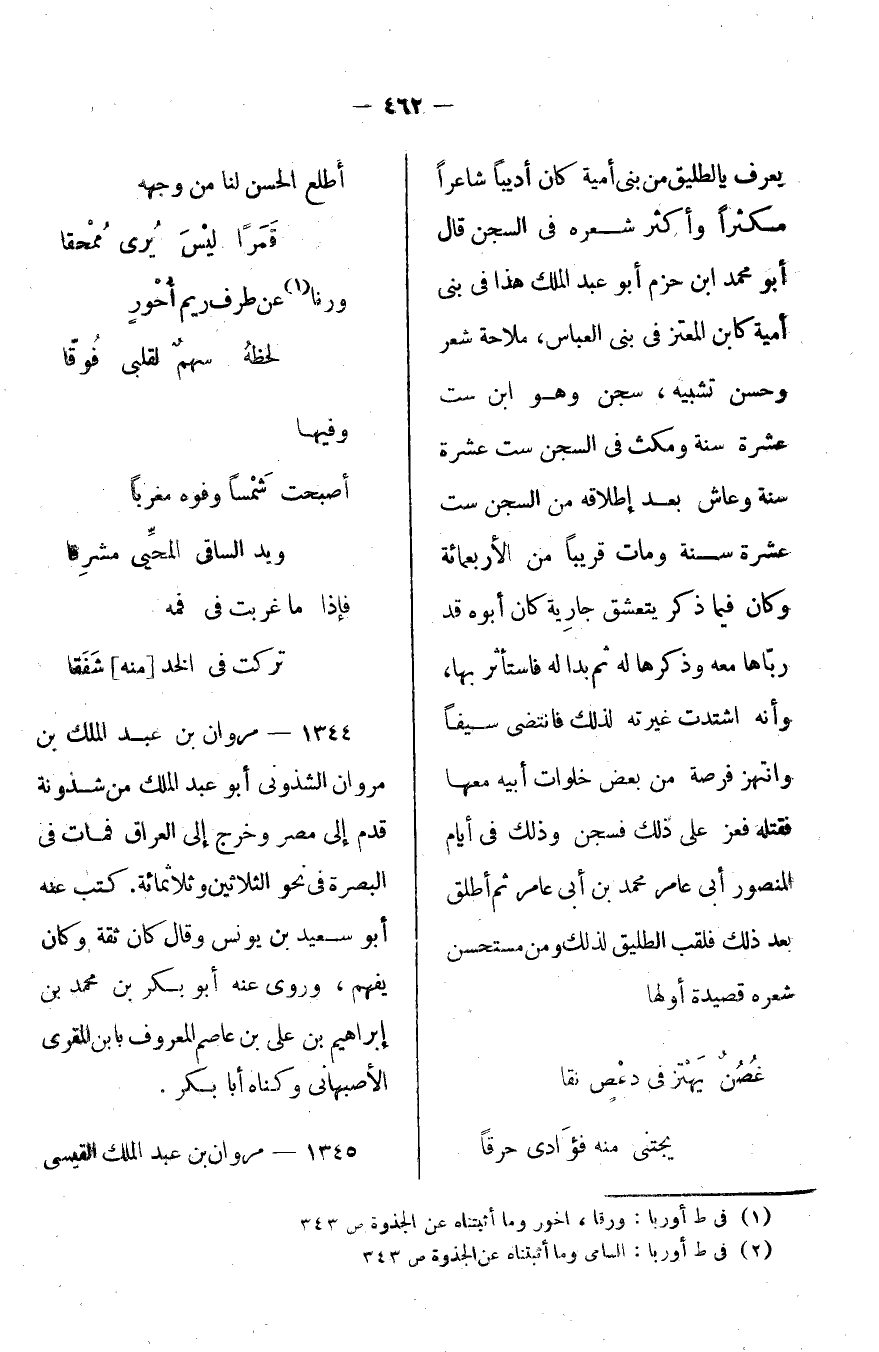 — ٤٦٢ —
يعرف بالطليق من بنى أمية كان أديباً شاعراً
مكثراً وأكثر شعره فى السجن قال
أبو محمد ابن حزم أبو عبد الملك هذا فى بنى
أمية كابن المعتز فى بنى العباس، ملاحة شعر
وحسن تشبيه، سجن وهو ابن ست
عشرة سنة ومكث فى السجن ست عشرة
سنة وعاش بعد إطلاقه من السجن ست
عشرة سنة ومات قريباً من الأربعمائة
وكان فيما ذكر يتعشق جارِية كان أبوه قد
ربّاها معه وذكرها له ثم بدا له فاستأثر بها،
وأنه اشتدت غيرته لذلك فانتضى سيفاً
وانتهز فرصة من بعض خلوات أبيه معها
فقتله فعز على ذلك فسجن وذلك فى أيام
المنصور أبى عامر محمد بن أبى عامر ثم أطلق
بعد ذلك فلقب الطليق لذلك ومن مستحسن
شعره قصيدة أولها
غُصُنٌ يَهْتَز فى دعْصٍ نقا
يجتنى منه فؤَادى حرقاً
أطلع الحسن لنا من وجهه
قَمَرًا ليْسَ يُرى مُمْحقا
ورنا(١) عن طرف ريم أُحْورٍ
لحظهُ سهمٌ لقلبى فُوقّا
وفيها
أصبحت شَمْساً وفوه مغرباً
ويد الساقى المحيِّى مشرِقا
فإذا ما غربت فى فمه
تركت فى الخد [منه] شَفَقا
١٣٤٤ — مروان بن عبد الملك بن
مروان الشذونى أبو عبد الملك من شذونة
قدم إلى مصر وخرج إلى العراق فمات فى
البصرة فى نحو الثلاثين وثلاثمائة. كتب عنه
أبو سعيد بن يونس وقال كان ثقة وكان
يفهم، وروى عنه أبو بكر بن محمد بن
إبراهيم بن على بن عاصم المعروف بابن المقرى
الأصبهانى وكناه أبا بكر.
١٣٤٥ — مروان بن عبد الملك القيسى
(١) فى ط أوربا : ورقا، اخور وما أثبتناه عن الجذوة ص ٣٤٣
(٢) فى ط أوربا : السامى وما أثبتناه عن الجذوة ص ٣٤٣